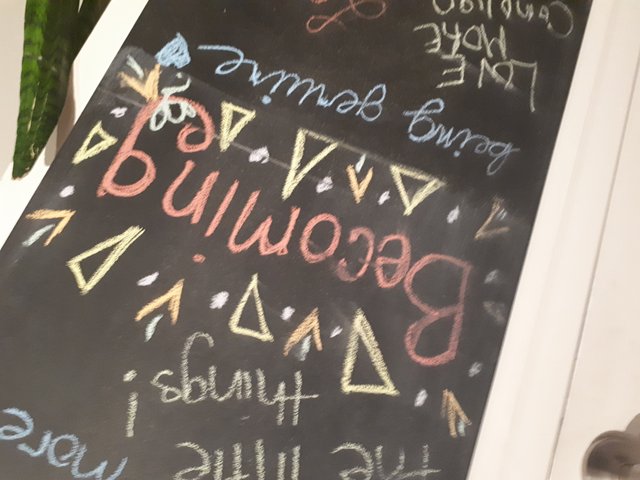 the little
more
things!
Becoming
being genuine
LOVE
MORE
Complain